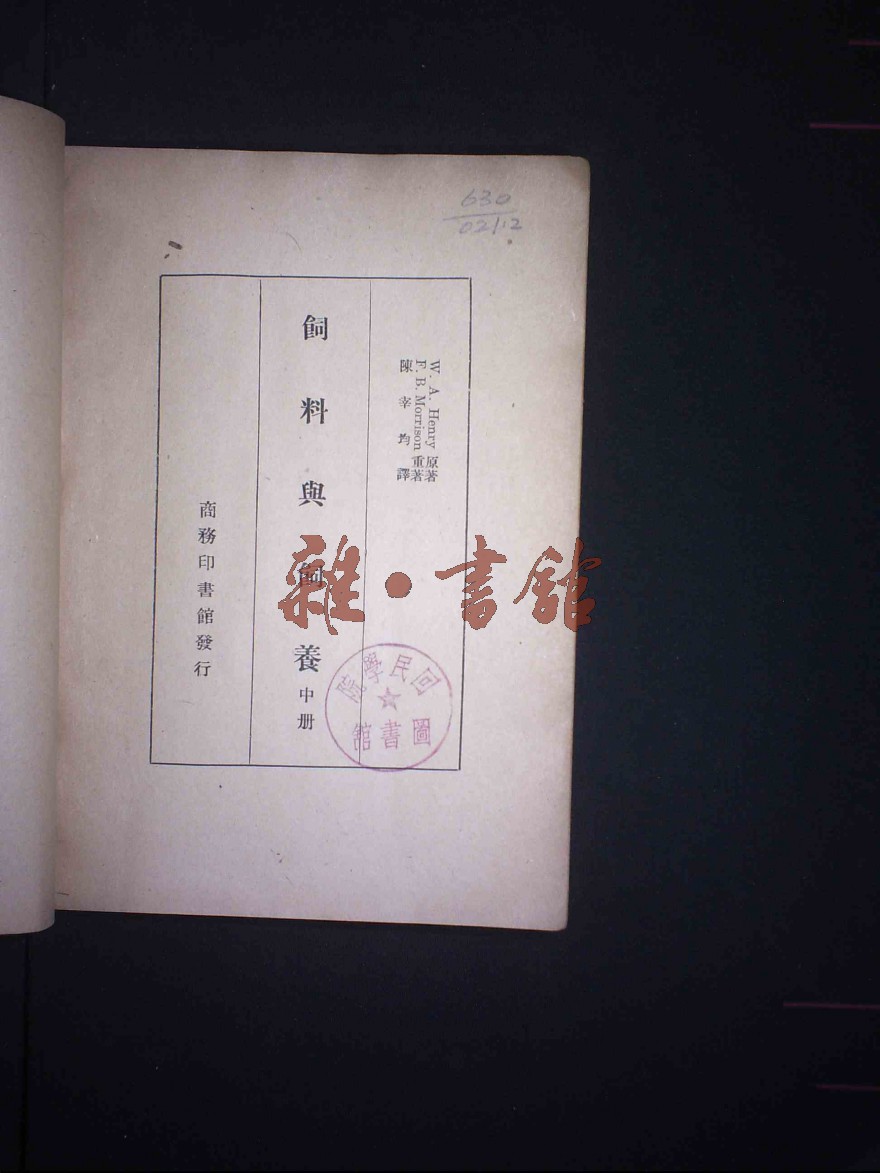 630
02/12
W. A. Henry 原著
F. B. Morrison 重著
陳宰均譯
飼料與飼養中册
商務印書館發行
雜·書館
回民學院
圖書舘